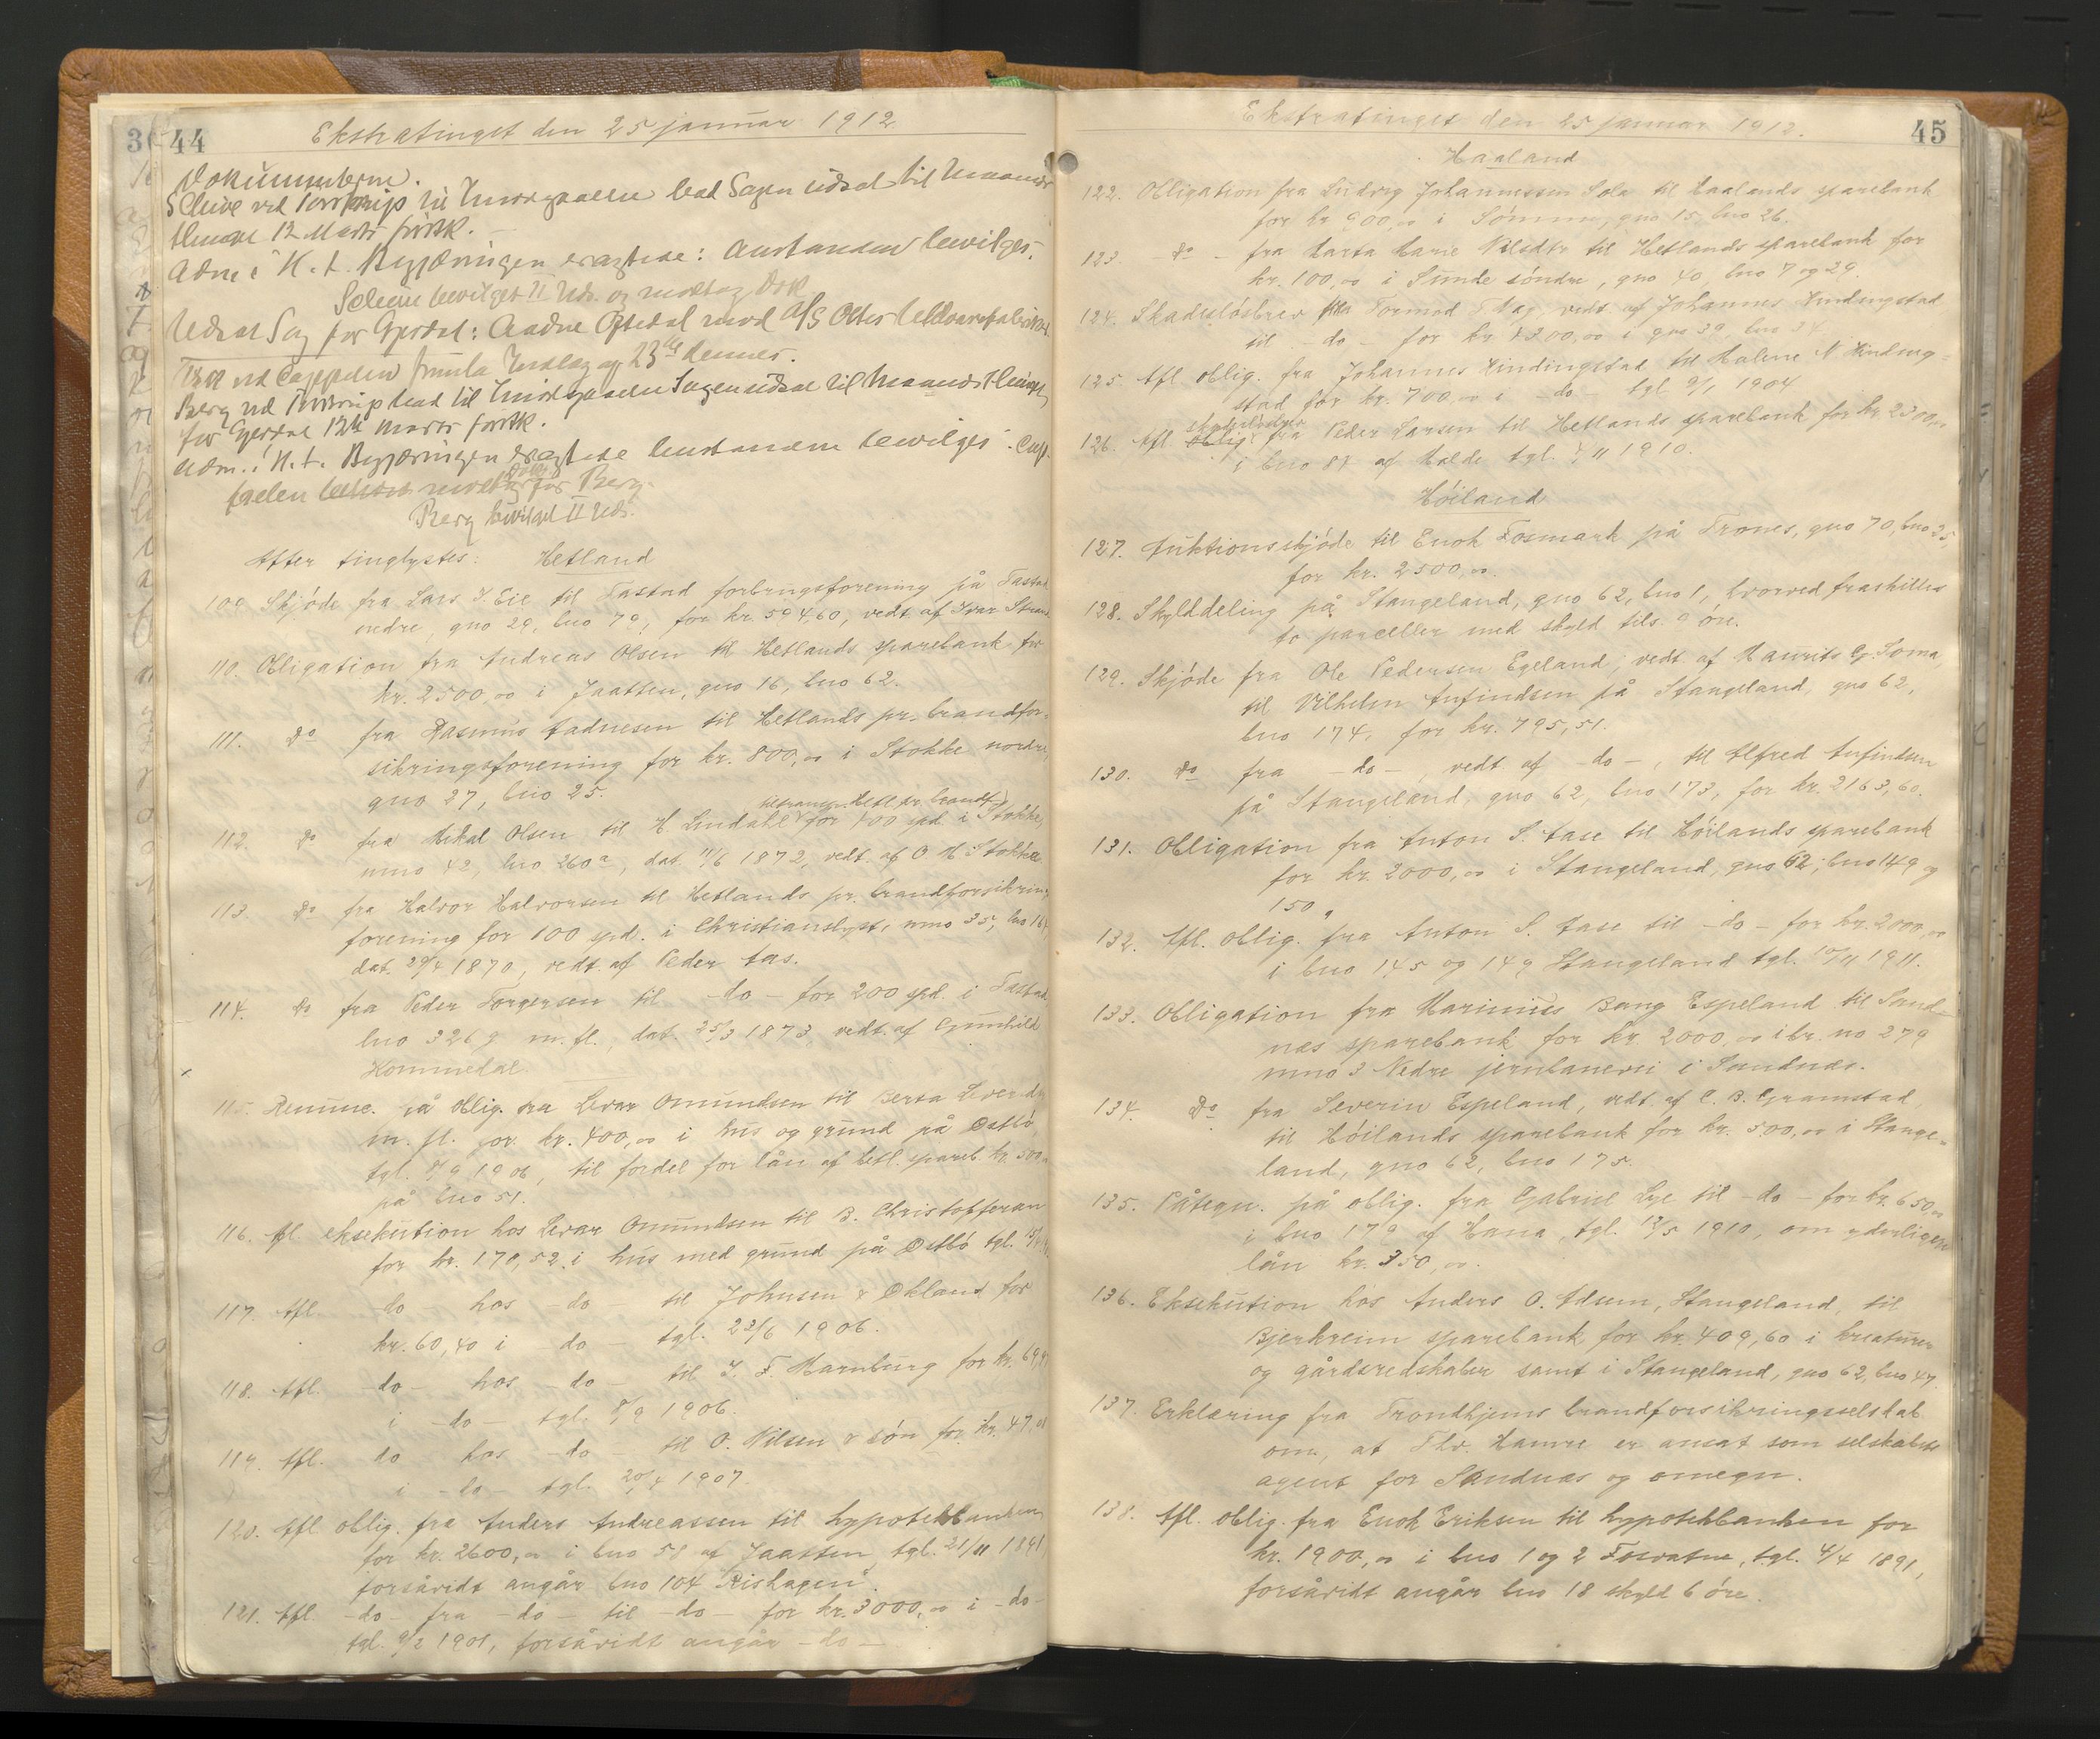 44
Ekstratinget den 25 januar 1912
Dokumenterne.
Scheie ved Torstrup til Imødegaaelse bad Sagen udsat til Maaneds
12 Marts førstk.
Adm. i N. t. Begjæringen eragtede: Anstanden bevilges.
Scheie bevilget II Uds. og modtog Dok
Udsat Sag for Gjesdal: Aadne Oftedal mod A/S Ottes Uldvarefabrik
Berg ved Torstrup bad til Imødegaaelse Sagen udsat til Maanedsthinget
for Gjesdal 12te Marts førstk.
Adm. i N. t. Begjæringen eragtede Anstanden bevilges.
modtog Dok. for Berg.
Berg bevilget II Uds.
Efter tinglystes: Hetland
109. Skjøde fra Lars J. Eie til Tastad forbrugsforening på Tastad
nedre, gno 29, bno 79, for kr. 594,60, vedt. af Ivar Strand
110. Obligation fra Andreas Olsen til Hetlands sparebank for
kr. 2500,00 i Jaatten, gno 16, bno 62.
111. Do fra Rasmus Aadnesen til Hetlands pr. brandfor-
sikringsforening for kr. 800,00 i Stokke nordre,
gno 27, bno 25.
112. Do fra Mikal Olsen til H. Lindahl for 100 spd. i Stokke,
mno 42, lno 260a, dat. 11/6 1872, vedt. af O. M. Stokka
113. Do fra Halvor Halvorsen til Hetlands pr. brandforsikrings
forening for 100 spd. i Christianslyst, mno 35, lno 16
dat. 29/4 1870, vedt. af Peder Aas.
114. Do fra Peder Torgersen til -do- for 200 spd. i Tastad
lno 326 g m. fl., dat. 25/3 1873, vedt. af Gunhild
Hommedal.
115. Renunc. på oblig. fra Ivar Omundsen til Berta Iversdtr
m. fl. for kr. 400,00 i hus og grund på Østbø,
tgl. 8/9 1906, til fordel for lån af Hetl. spareb. kr. 500
på bno 51.
116. Afl. eksekution hos Ivar Omundsen til B. Christoffersen
for kr. 170,52 i hus med grund på Østbø tgl.
117. Afl. -do- hos -do- til Johnsen & Økland for
kr. 60,40 i -do- tgl. 22/6 1906.
118. Afl. -do- hos -do- til J. F. Marnburg for kr. 69,
i -do- tgl. 8/9 1906.
119. Afl. do hos -do- til O. Nilsen & søn for kr. 47,
i -do- tgl. 20/4 1907.
120. Afl. oblig. fra Anders Andreassen til hypotekbanken
for kr. 2600,00 i bno 58 af Jaatten, tgl. 21/11 1891,
forsåvidt angår bno 104 "Rishagen".
121. Afl. -do- fra -do- til -do- for kr. 3000,00 i -do-
tgl. 9/2 1901, forsåvidt angår -do-
45
Ekstratinget den 25 januar 1912.
Haaland
122. Obligation fra Ludvig Johannessen Sola til Haalands sparebank
for kr. 900,00 i Sømme, gno 15, bno 26.
123. Do - fra Marta Marie Nilsdtr til Hetlands sparebank for
kr. 100,00 i Sunde søndre, gno 40, bno 7 og 29.
124. Skadesløsbrev fra Tormod S. Nag, vedt. af Johannes Hindingstad
til -do- for kr. 4300,00 i gno 39, bno 34.
125. Afl. oblig. fra Johannes Hindingstad til Malene N. Hinding-
stad for kr. 700,00 i -do- tgl. 9/1 1904.
126. Afl. skadesløsbrev fra Peder Larsen til Hetlands sparebank for kr. 2300,00
i bno 81 af Malde tgl. 4/11 1910.
Høiland
127. Auktionsskjøde til Enok Fosmark på Trones, gno 70, bno 35,
for kr. 2500,00.
128. Skylddeling på Stangeland, gno 62, bno 1, hvorved fraskilles
to parceller med skyld tils. 9 øre.
129. Skjøde fra Ole Pedersen Egeland, vedt. af Maurits G. Soma,
til Vilhelm Anfindsen på Stangeland, gno 62,
bno 174, for kr. 795,51.
130. Do fra -do-, vedt. af -do-, til Alfred Anfindsen
på Stangeland, gno 62, bno 173, for kr. 2163,60.
131. Obligation fra Anton S. Aase til Høilands sparebank
for kr. 2000,00 i Stangeland, gno 62, bno 149 og
150.
132. Afl. oblig. fra Anton S. Aase til -do- for kr. 2000,00
i bno 145 og 149 Stangeland tgl. 10/11 1911.
133. Obligation fra Marinius Bang Espeland til Sand-
næs sparebank for kr. 2000,00 i br. no 279
mno 3 Nedre jernbanevei i Sandnæs.
134. Do fra Severin Espeland, vedt. af C. B. Gramstad
til Høilands sparebank for kr. 500,00 i Stange-
land, gno 62, bno 175.
135. Påtegn. på oblig. fra Gabriel Lye til -do- for kr. 650,00
i bno 179 af Hana, tgl. 12/5 1910, om yderligere
lån kr. 350,00.
136. Eksekution hos Anders O. Adsem, Stangeland, til
Bjerkreim sparebank for kr. 409,60 i kreaturer
og gårdsredskaber samt i Stangeland, gno 62, bno 47.
137. Erklæring fra Trondhjems brandforsikringsselskab
om, at Thv. Hamre er ansat som selskabets
agent for Sandnæs og omegn.
138. Afl. oblig. fra Enok Eriksen til hypotekbanken for
kr. 1900,00 i bno 1 og 2 Fosvatne, tgl. 4/4 1891,
forsåvidt angår bno 18 skyld 6 øre.